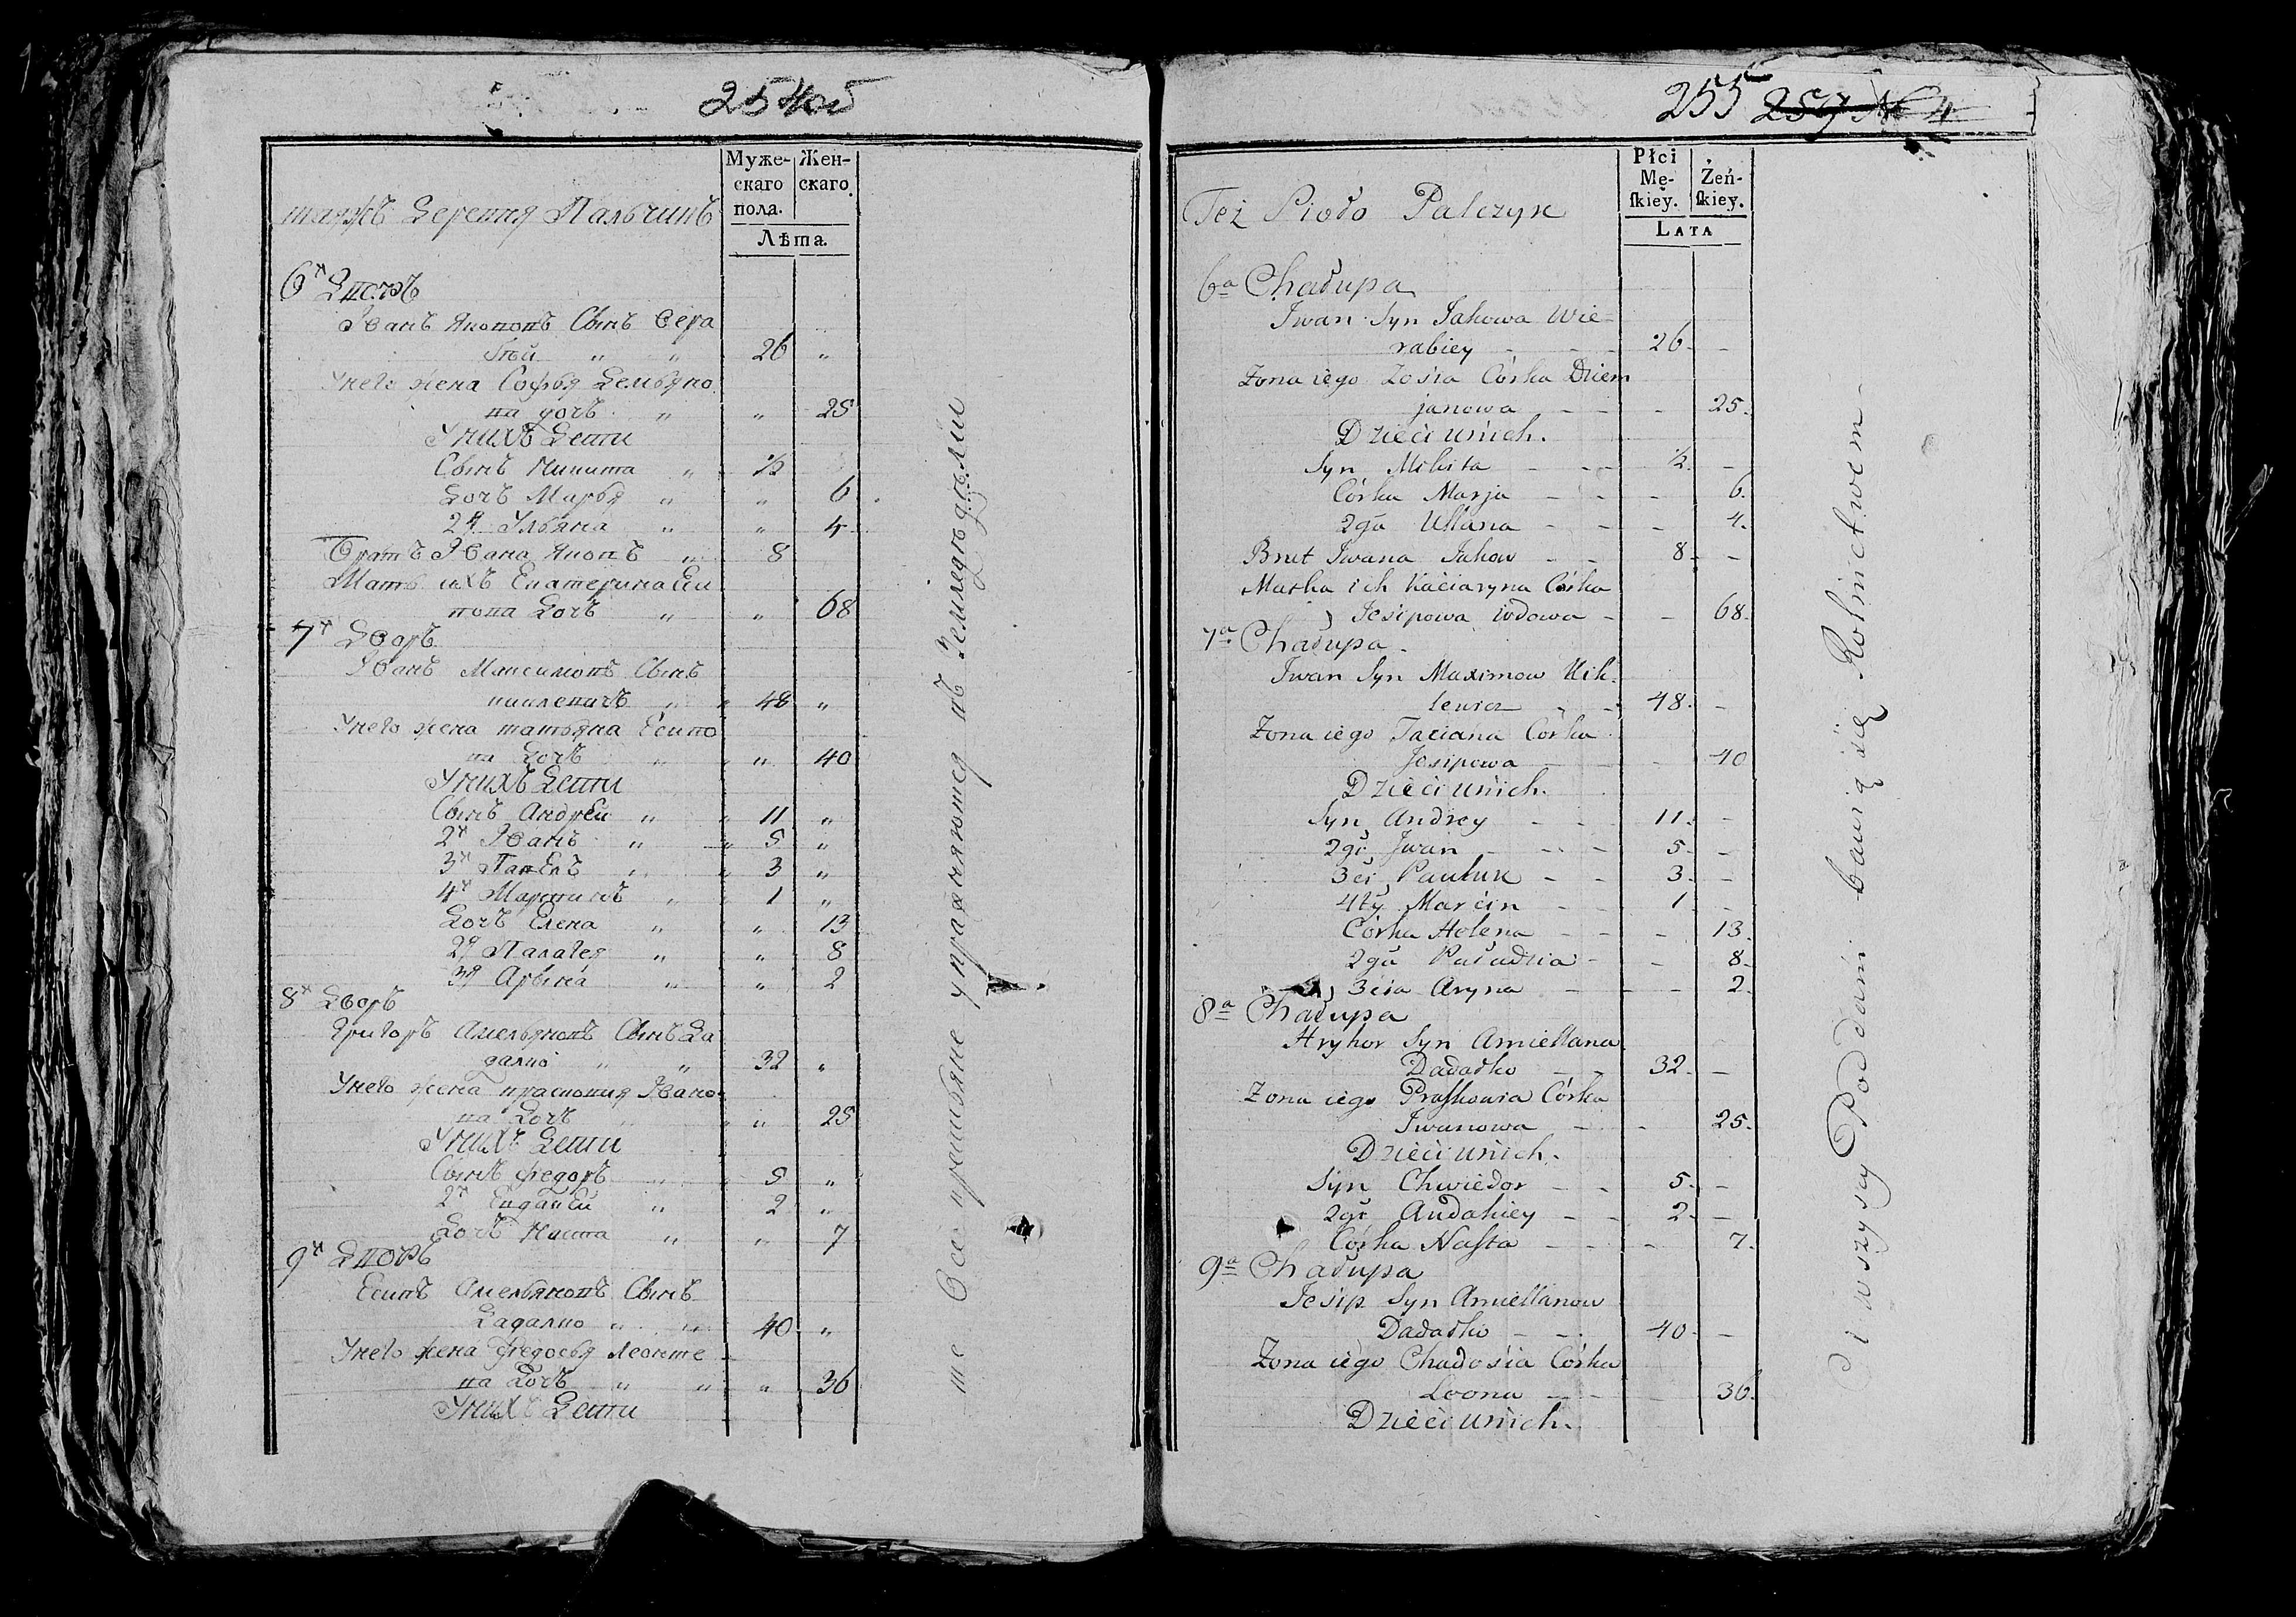 254об
Муже-
скаго
пола.
Жен-
скаго.
Лѣта.
таяжъ Деревня Пальчинъ
6й Дворъ
Иванъ Якововъ Сынъ Вера
бей " " 26 "
У него жена Софья Демьяно
ва дочь " " 25
У нихъ Дети
Сынъ Микита " ½
Дочь Марья " " 6
2я Ульяна " " 4
Братъ Ивана Яковъ " 8
Мать ихъ Екатерина Еси
пова Дочь " " 68
7й Дворъ
Иванъ Максимовъ Сынъ
киклевичъ " 48 "
У него жена татьяна Есипо
ва Дочь " " 40
У нихъ Дети
Сынъ Андрей " 11 "
2й Иванъ " 5 "
3й Павелъ " 3 "
4й Мартинъ " 1 "
Дочь Елена " " 13
2я Палагея " " 8
3я Арына " " 2
8й Дворъ
Григоръ Амельяновъ Сынъ Да
далко " " 32 "
У него жена прасковия Ивано
ва Дочь " 25
У нихъ Дети
Сынъ федоръ " 5 "
2й Евдакей " 2 "
Дочь Наста " " 7
9й Дворъ
Есипъ Амельяновъ Сынъ
Дадалко " " 40 "
У него жена федосья Леонте
ва Дочь " " " 36
У нихъ Дети
те Все крестьяне упражняются въ Земледѣлии
255 257 № 4
Płci
Mę-
ſkiey.
Żeń-
ſkiey.
LATA
Też Sioło Palczyn
6a Chałupa
Iwan Syn Jakowa Wie-
rabiey - - 26 -
Zona iego Zosia Córka Dziem
janowa - - - 25.
Dzieci u nich.
Syn Mikita - - - ½ -
Córka Marja - - - - 6.
2ga Ullana - - - 4.
Brat Iwana Jakow - - 8 - -
Matka ich Kaciaryna Córka
Jesipowa wdowa - - 68.
7a Chałupa -
Iwan Syn Maximow Kik-
lewicz - - 48 - -
Zona iego Taciana Córka
Jesipowa - - 40
Dzieci u nich.
Syn Andrey - - 11. -
2gi Iwan - - - 5 - -
3ci Pauluk - - 3 - -
4ty Marcin - - 1 -
Córka Holena - - - - 13.
2ga Paładzia - - 8.
3cia Aryna - - - 2.
8a Chałupa
Hryhor Syn Amiellana
Dadałko - - 32. -
Zona iego Praſkowia Córka
Iwanowa - - 25.
Dzieci u nich.
Syn Chwiedor - - 5. -
2gi Audakiey - - 2. -
Córka Naſta - - - - 7.
9a Chałupa
Jesip Syn Amiellanow
Dadałko - - 40 - -
Zona iego Chadosia Córka
Leona - - - 36.
Dzieci u nich.
Ci wszyscy Poddani bawią się Rolnictwem -